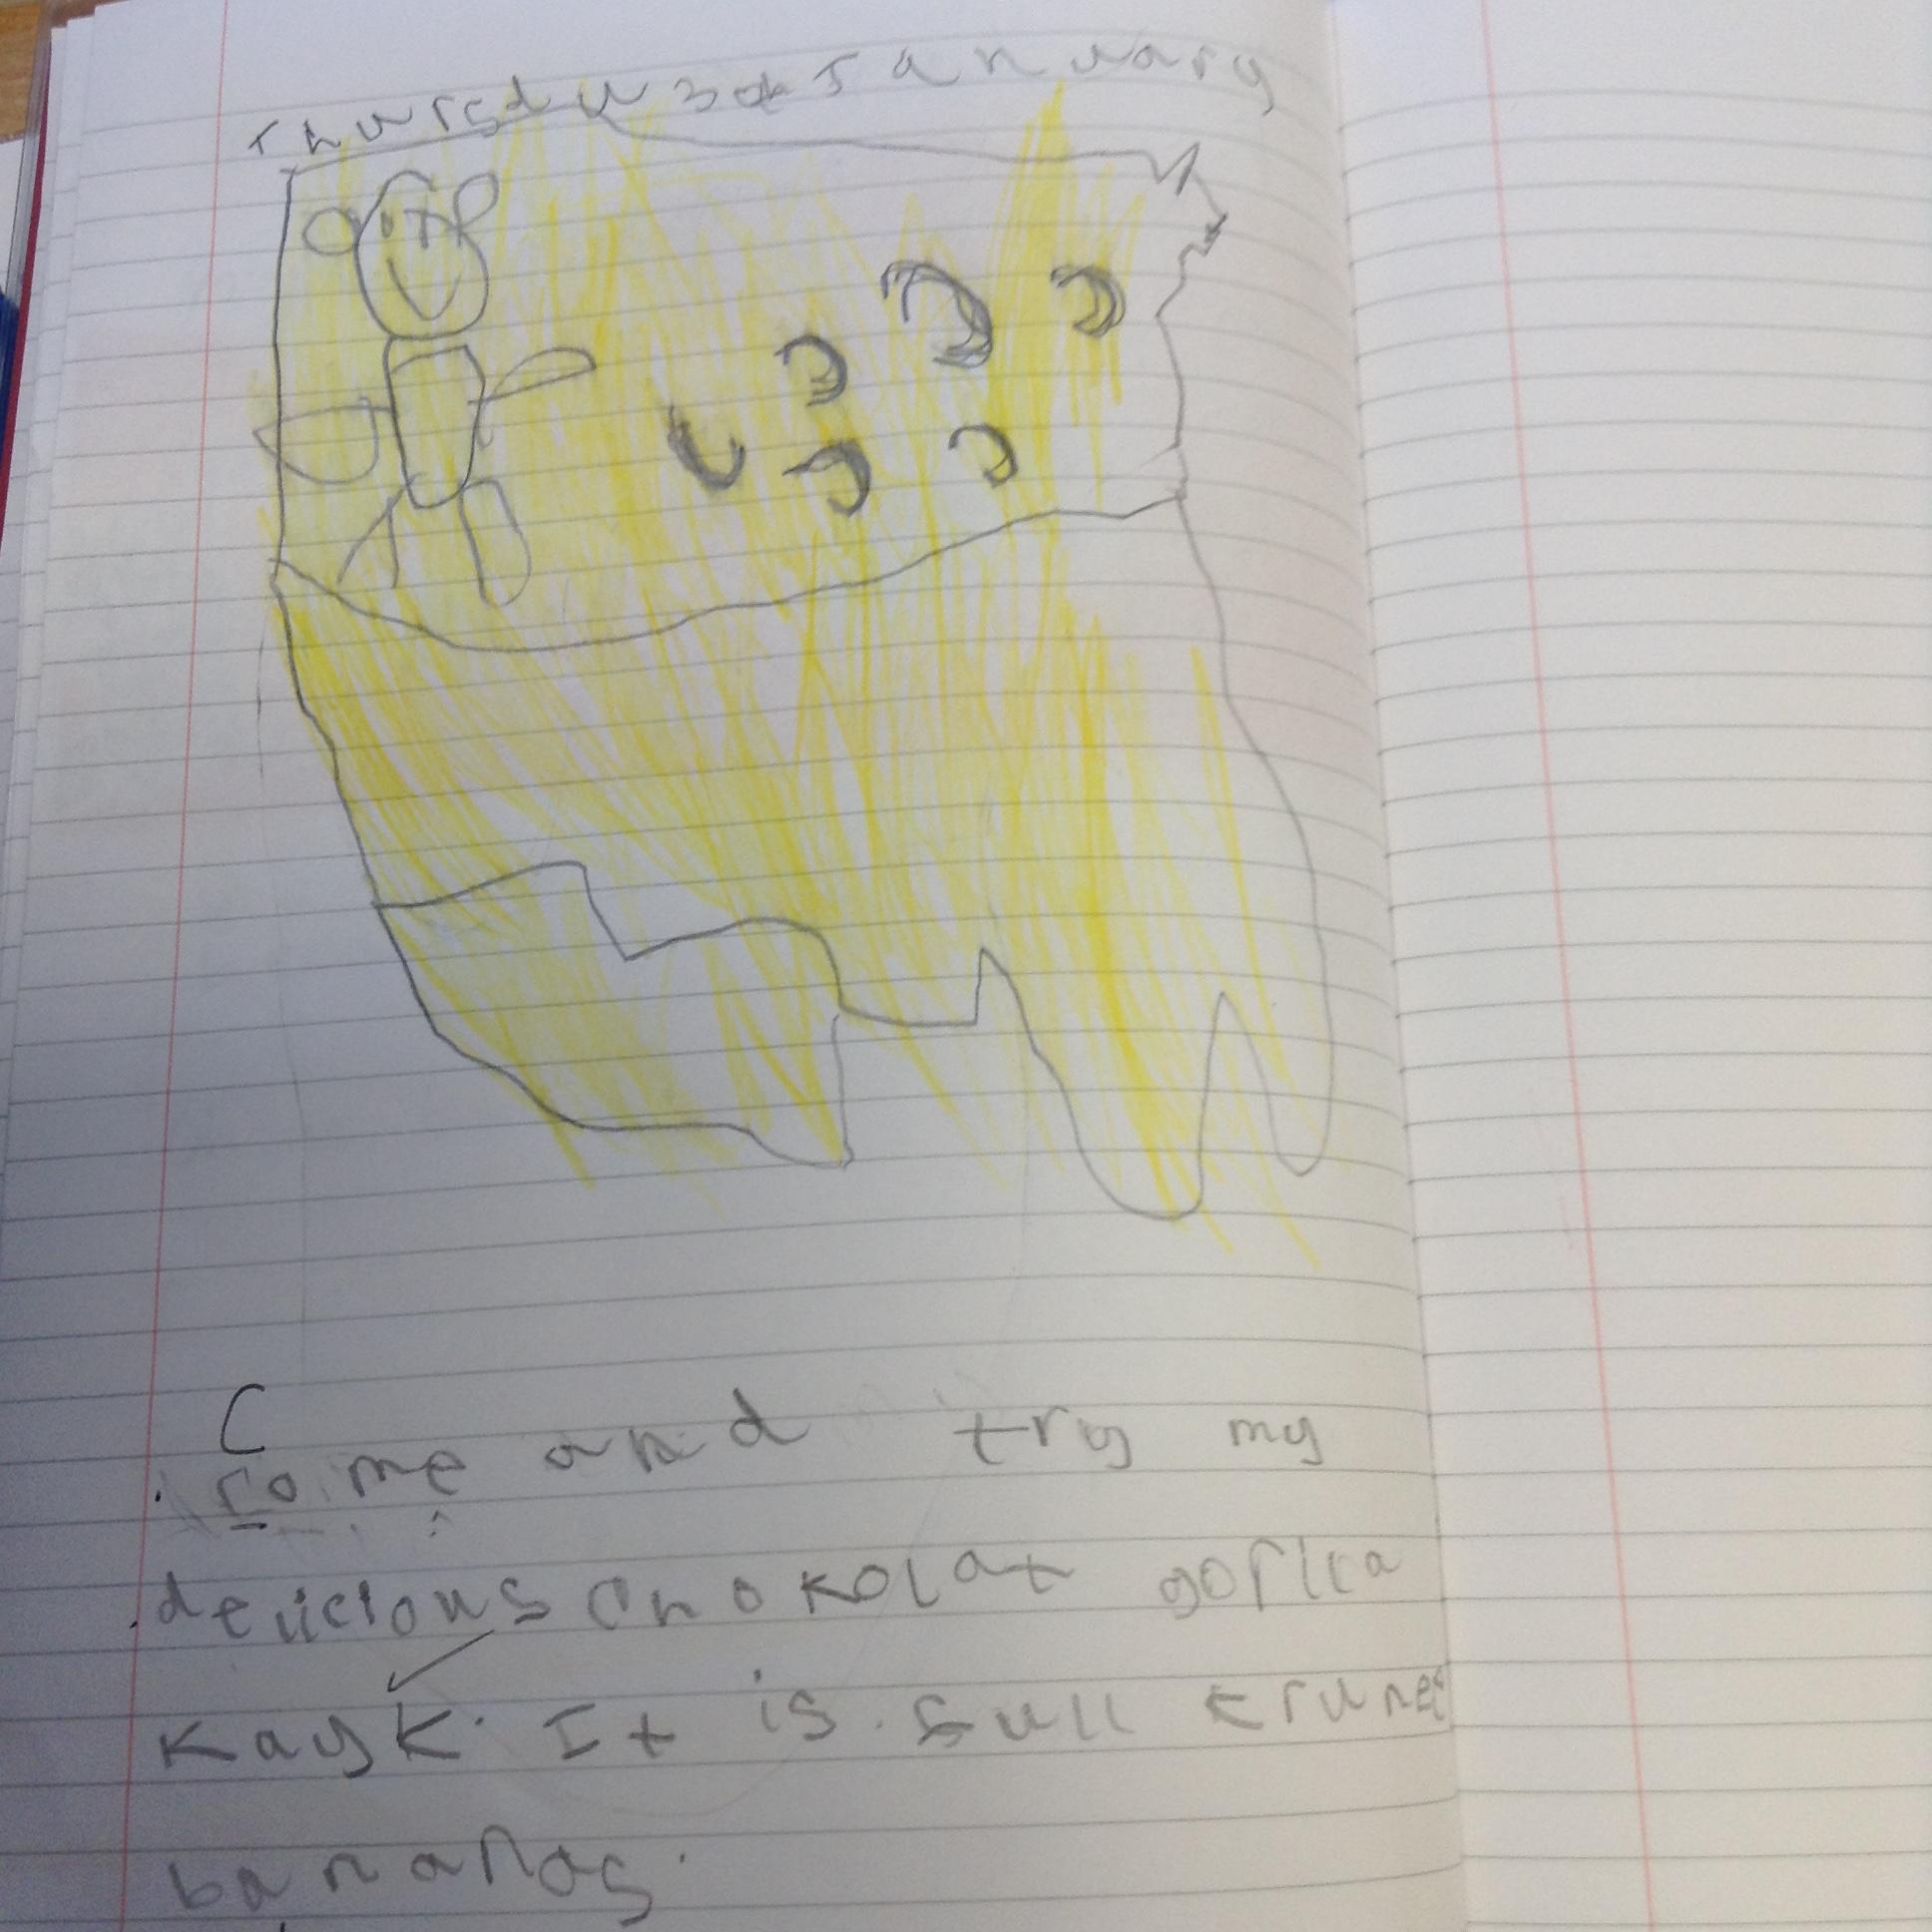 Thursdy 30th January
C
come and try my
delicious chokolat gorlla
kayk. It is full
bananas.